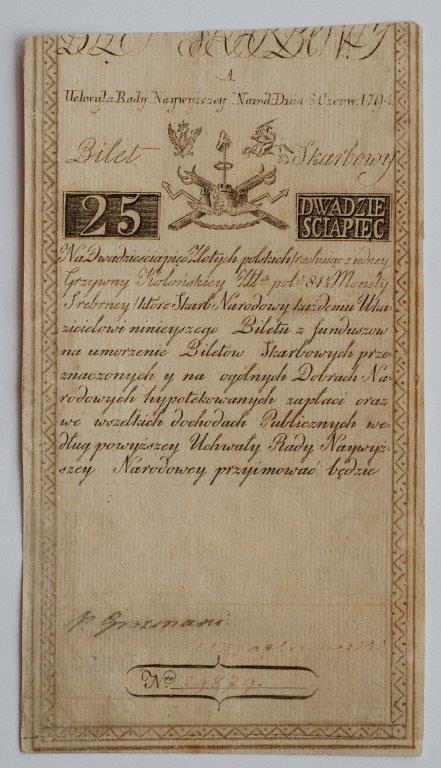 BILET SKARBOWY
A
Uchwała Rady Naywyższey Narod: Dnia 8 Czerw. 1794.
Bilet Skarbowy
25 DWADZIE
ŚCIAPIĘC
Na Dwadzieściapięc Złotych polskich rachuiąc z iedney
Grzywny Kolońskiey zł: pol: 84½ Monety
Srebrney ktore Skarb Narodowy każdemu Uka
zicielowi ninieyszego Biletu z funduszow
na umorzenie Biletow Skarbowych prze
znaczonych y na ogólnych Dobrach Na
rodowych hypotekowanych zapłaci oraz
we wszelkich dochodach Publicznych we
dług powyższey Uchwały Rady Naywyż
szey Narodowey przyimować będzie
Nro